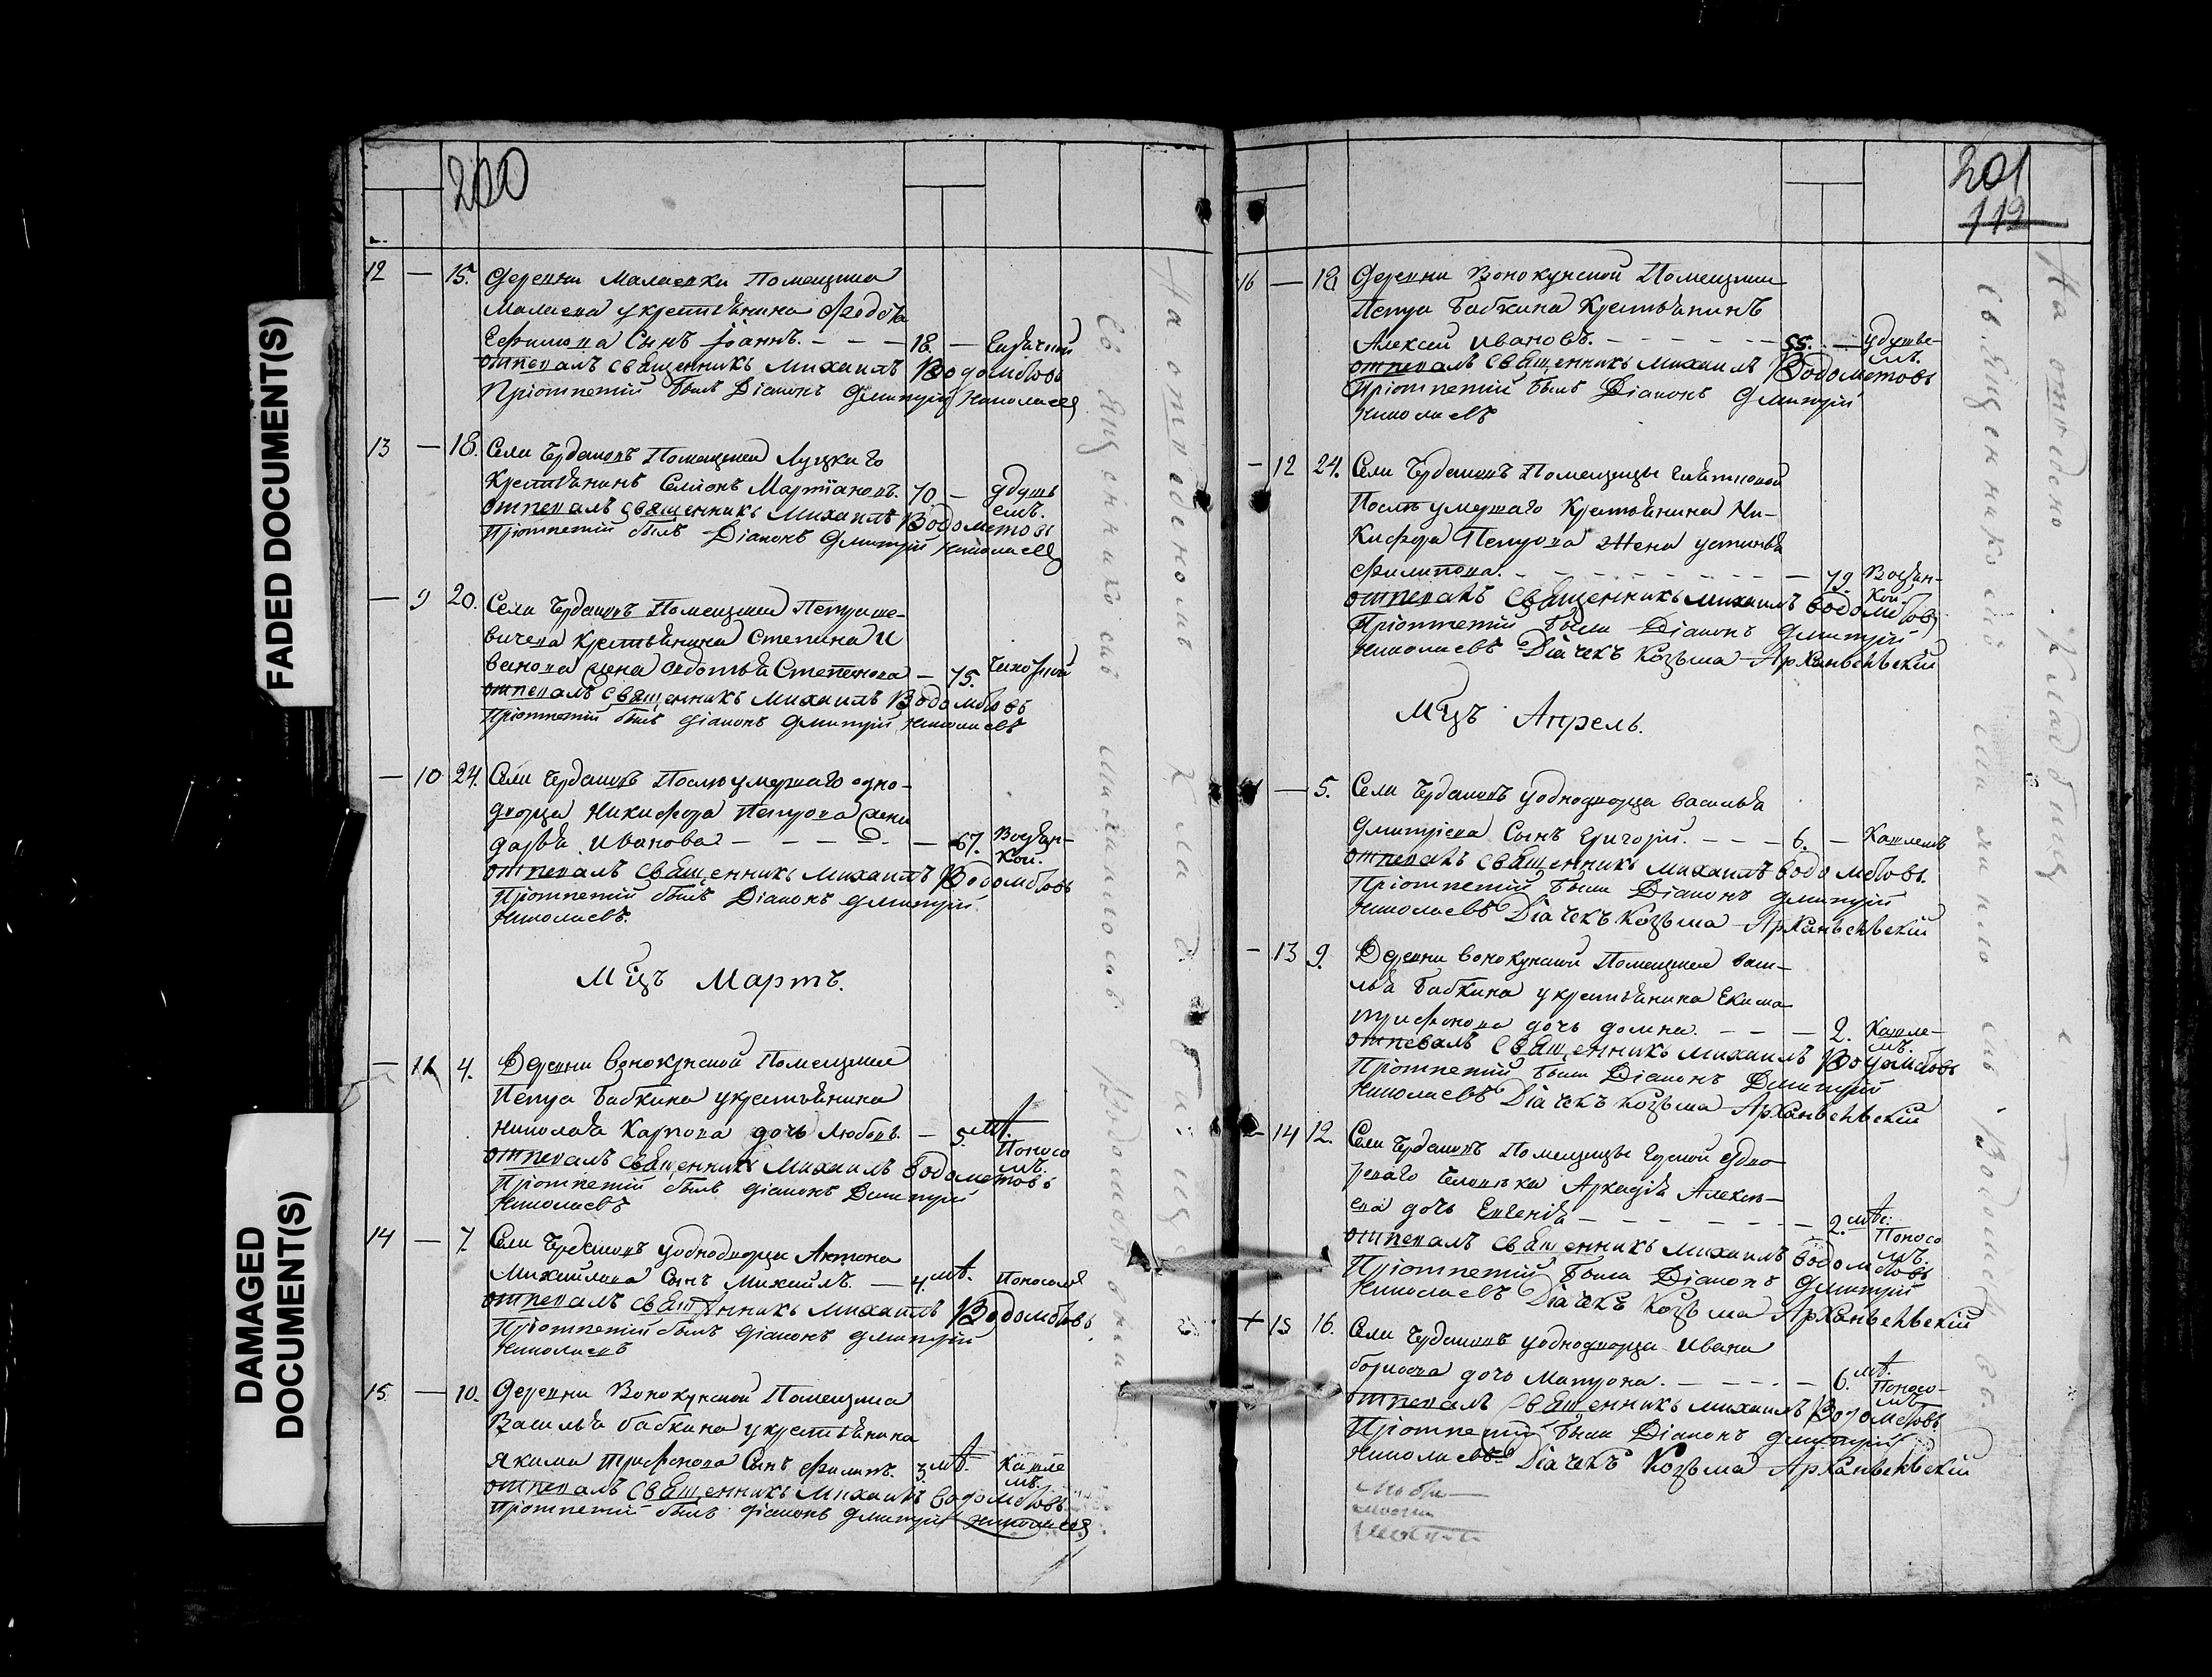 FADED DOCUMENT(S)
DAMAGED
DOCUMENT(S)
200
12 — 15. Деревни Малаевки Помещика
Малаева у крестьянина Федота
Ефимова Сынъ Іоаннъ. — — — 18. —
отпевалъ священникъ Михаилъ Водометовъ
Приотпетіи былъ Діаконъ Дмитрій Николаевъ
13 — 18. Села Чердаковъ Помещика Луцкаго
Крестьянинъ Семіонъ Мартіановъ. 70 — удушь
емъ.
отпевалъ священникъ Михаилъ Водометовъ
Приотпетіи былъ Діаконъ Дмитрій Николаевъ
— 9 20. Села Чердаковъ Помещика Петруше-
вичева крестьянина Степана И
ванова жена Авдотья Степанова — 75.
отпевалъ священникъ Михаилъ Водометовъ
Приотпетіи былъ діаконъ Дмитрій Николаевъ
— 10 24. Села Чердаковъ Послѣ умершаго одно-
дворца Никифора Петрова жена
дарья Иванова — — — — — 67.
отпевалъ священникъ Михаилъ Водометовъ
Приотпетіи былъ Діаконъ Дмитрій
Николаевъ.
Мцъ Мартъ.
— 11 4. Деревни Вонокунской Помещика
Петра Бабкина у крестьянина
Николая Карпова дочь Любовь. — 5. мѣ. Поносо
мъ.
отпевалъ священникъ Михаилъ Водометовъ
Приотпетіи былъ діаконъ Дмитрій
Николаевъ
14 — 7. Села Чердаковъ у однодворца Антона
Михайлова Сынъ Михаилъ. — 4. мѣ. Поносомъ
отпевалъ священникъ Михаилъ Водометовъ
Приотпетіи былъ діаконъ Дмитрій
Николаевъ
15 — 10. Деревни Вонокунской Помещика
Василья бабкина у крестьянина
Якима Трифонова Сынъ Филипъ. 3. мѣ. Кашле
мъ.
отпевалъ священникъ Михаилъ Водометовъ
Приотпетіи былъ діаконъ Дмитрій Николаевъ
На отведеномъ Кладбище
Священникомъ Михаиломъ Водометовымъ
201
119
16 — 18 Деревни Вонокунской Помещика
Петра Бабкина Крестьянинъ
Алексей Ивановъ. — — — 55. — удушье-
мъ.
отпевалъ священникъ Михаилъ Водометовъ
Приотпетіи былъ Діаконъ Дмитрій
Николаевъ
— 12 24. Села Чердаковъ Помещицы
Послѣ умершаго Крестьянина Ни-
кифора Петрова жена устинья
Филипова. — — — — 79.
отпевалъ священникъ Михаилъ Водометовъ
Приотпетіи были Діаконъ Дмитрій
Николаевъ Діачекъ Козьма Арханьгельскій
Мцъ Апрель.
— 5. Села Чердаковъ у однодворца Василья
Дмитріева Сынъ Григорій. — — — 6. — Кашлемъ
отпевалъ священникъ Михаилъ Водометовъ.
Приотпетіи были Діаконъ Дмитрій
Николаевъ Діачекъ Козьма Арханьгельскій
— 13 9. Деревни Вонокунской Помещика Васи-
лья Бабкина у крестьянина Екима
Трифонова дочь домна. — — — 2. Кашле-
мъ.
отпевалъ священникъ Михаилъ Водометовъ
Приотпетіи были Діаконъ Дмитрій
Николаевъ Діачекъ Козьма Арханьгельскій
— 14 12. Села Чердаковъ Помещицы
человѣка Аркадія Алексѣ-
ева дочь Евгенія — — — — 2. мѣ. Поносо
мъ.
отпевалъ священникъ Михаилъ Водометовъ
Приотпетіи были Діаконъ Дмитрій
Николаевъ Діачекъ Козьма Арханьгельскій
+ 15 16. Села Чердаковъ у однодворца Ивана
борисова дочь Матрона. — — — — 6. мѣ. Поносо-
мъ
отпевалъ священникъ Михаилъ Водометовъ
Приотпетіи были Діаконъ Дмитрій
Николаевъ Діачекъ Козьма Арханьгельскій
На отведено Кладбище
Священникомъ